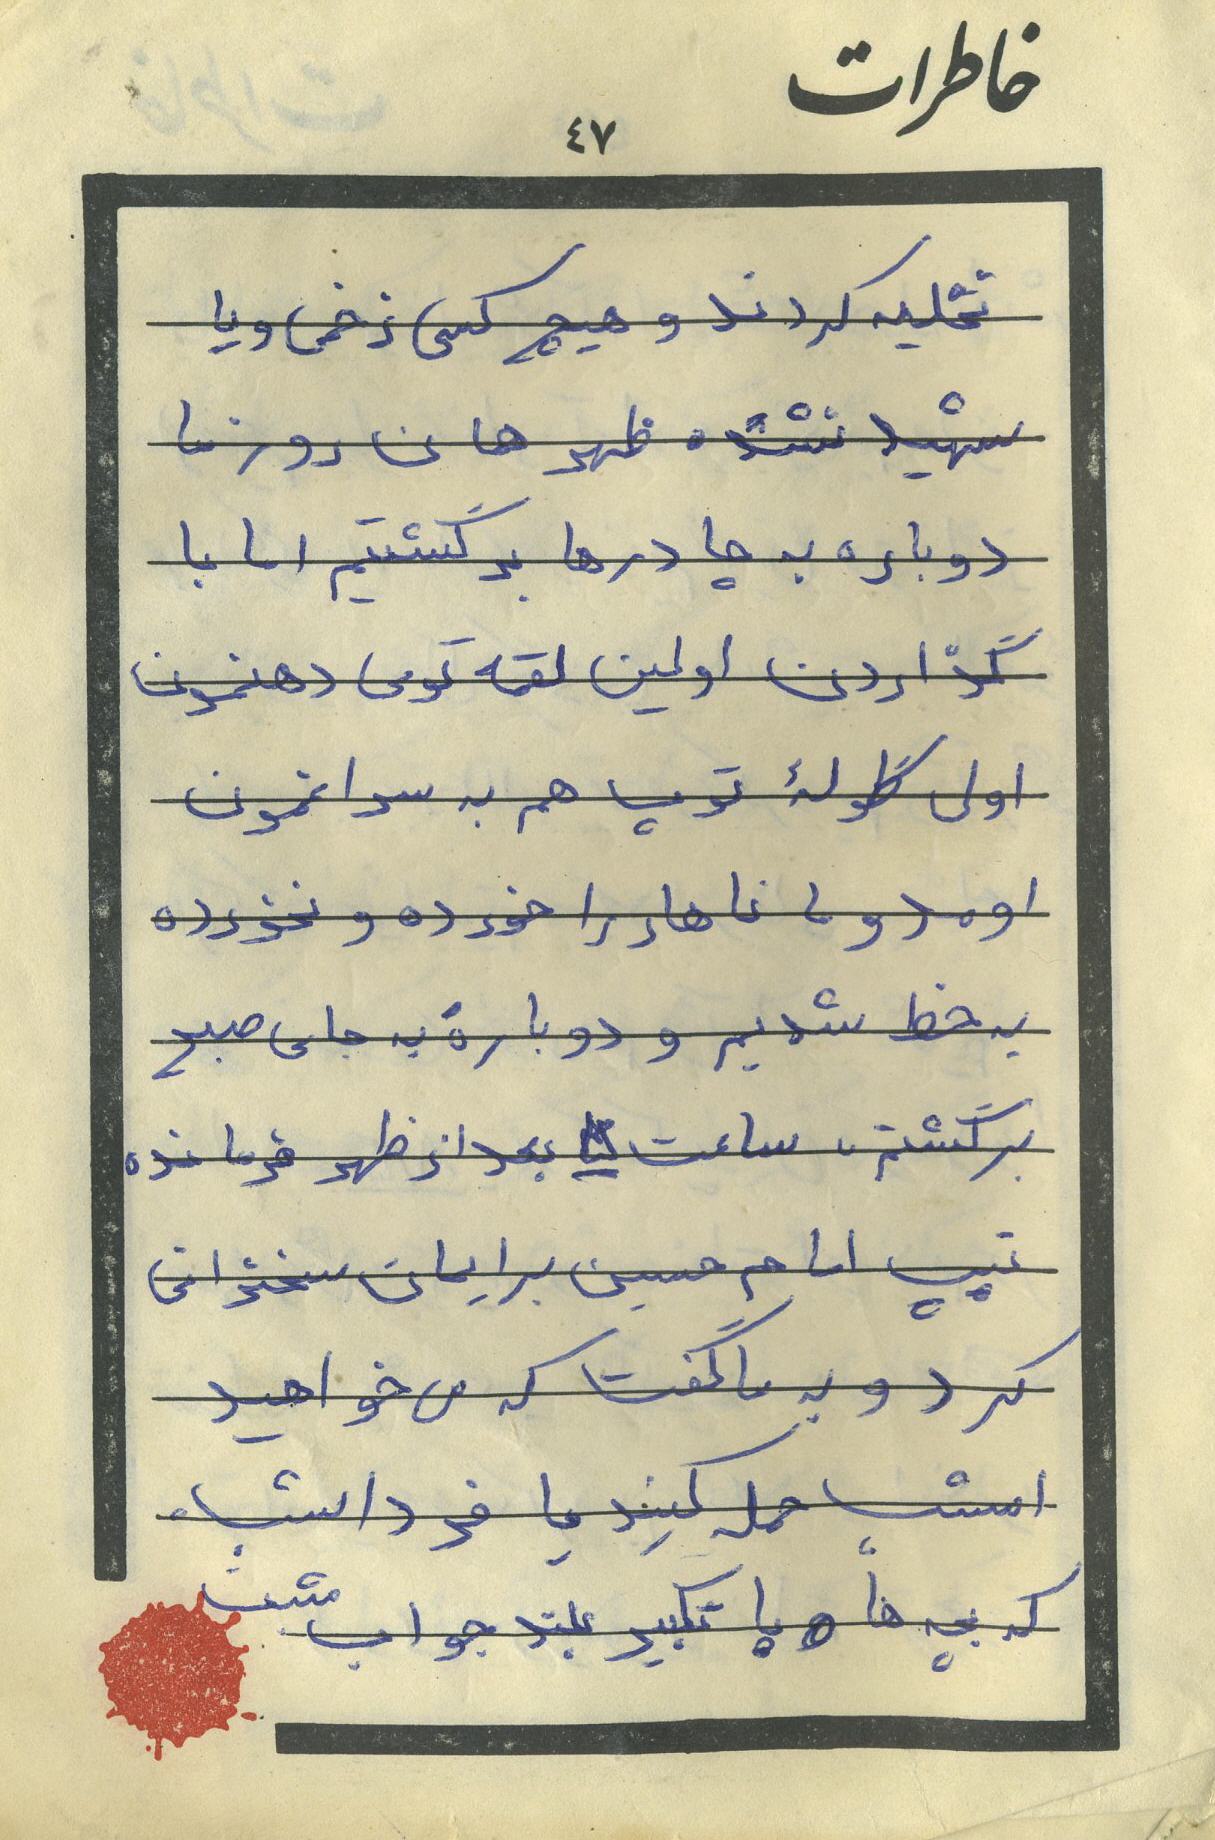 خاطرات
٤٧
تخلیه کردند و هیچ کسی زخمی و یا
شهید نشده ظهر همان روز ما
دوباره به چادرها برگشتیم اما با
گذاردن اولین لقمه توی دهنمون
اولی گلولهٔ توپ هم به سراغمون
اومد و ما ناهار را خورده و نخورده
به خط شدیم و دوباره به جای صبح
برگشتم، ساعت بعد از ظهر فرمانده
تیپ امام حسین برایمان سخنرانی
کرد و به ما گفت که می خواهید
امشب حمله کنید یا فردا شب،
که بچه ها با تکبیر بلند جواب مثبت